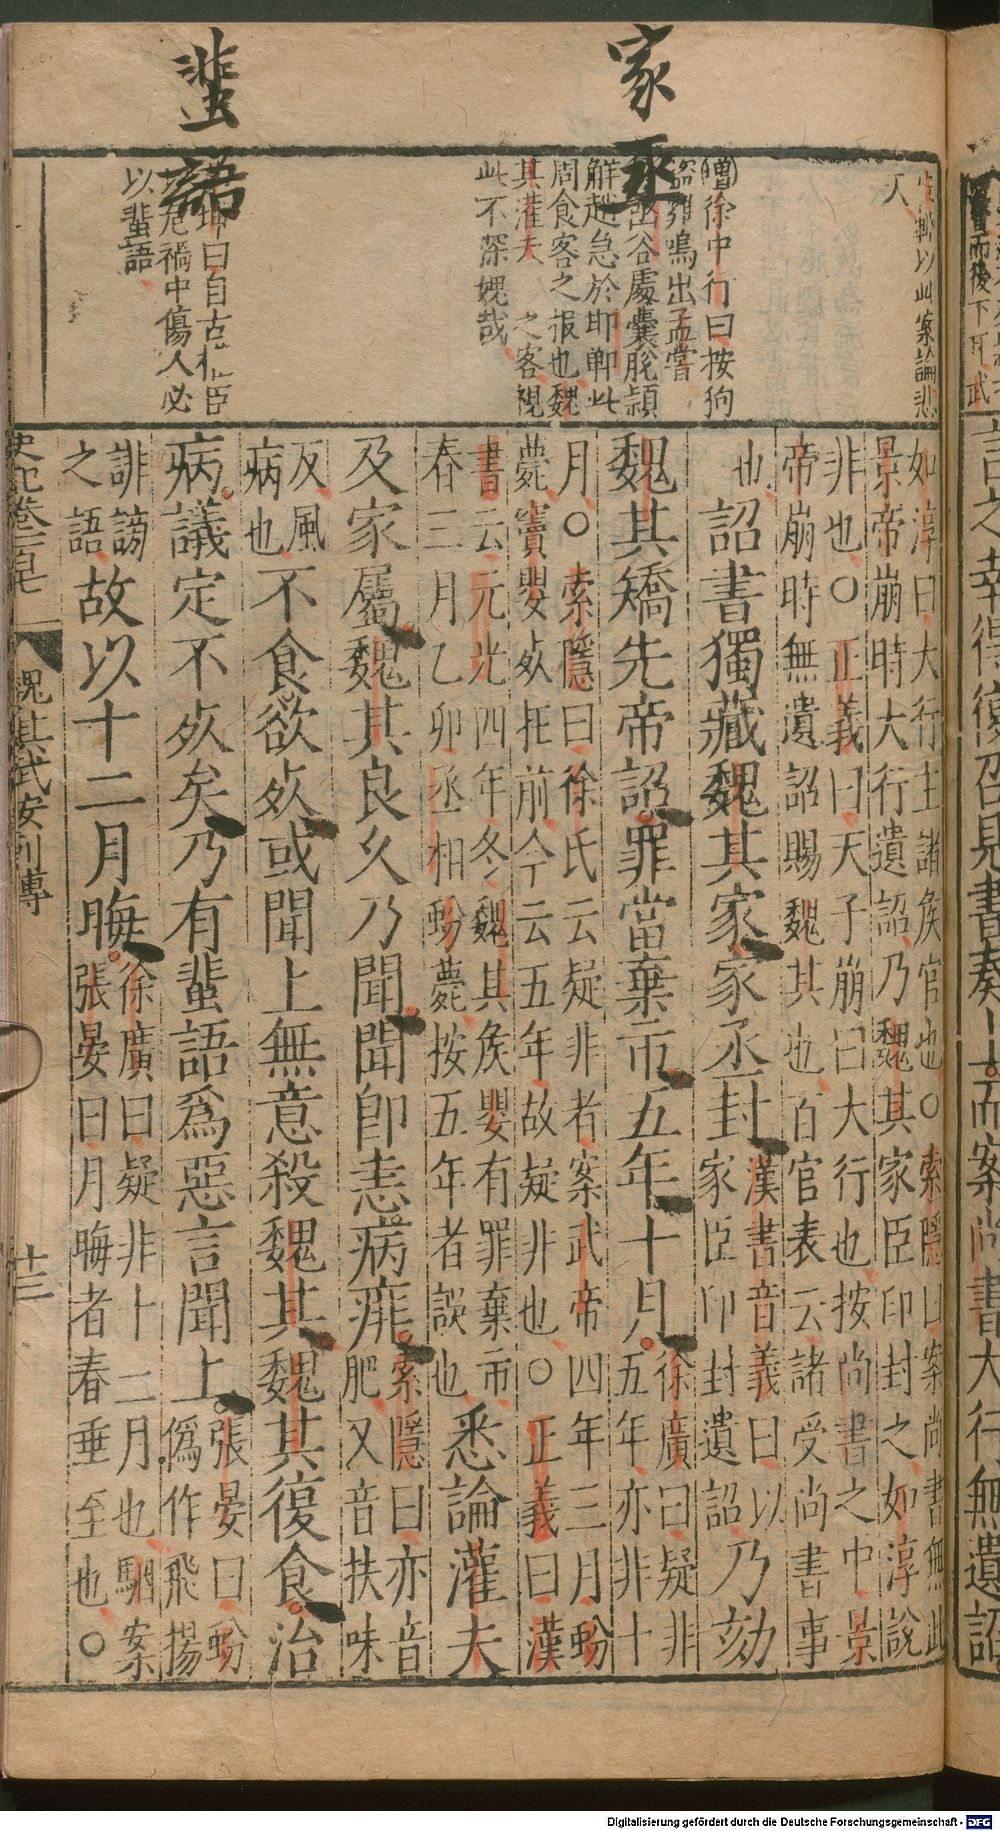 家丞
蜚語
增徐中行曰按狗
盜雞鳴出孟嘗
函谷處囊脫穎
解趙急於邯鄲此
周食客之报也魏
其灌夫之客視
此不深媿哉
曰自古權臣
危禍中傷人必
以蜚語
如淳曰大行主諸矦官也○索隱曰案尚書無此
景帝崩時大行遺詔乃魏其家臣印封之如淳說
非也○正義曰天子崩曰大行也按尚書之中景
帝崩時無遺詔賜魏其也百官表云諸受尚書事
也
詔書獨藏魏其家家丞封
漢書音義曰以
家臣印封遺詔
乃劾
魏其矯先帝詔罪當棄市五年十月
徐廣曰疑非
五年亦非十
月○索隱曰徐氏云疑非者案武帝四年三月蚡
薨竇嬰死在前今云五年故疑非也○正義曰漢
書云元光四年冬魏其矦嬰有罪棄市
春三月乙卯丞相蚡薨按五年者誤也
悉論灌夫
及家屬魏其良久乃聞聞卽恚病痱
索隱曰亦音
肥又音扶味
反風
病也
不食欲死或聞上無意殺魏其魏其復食治
病議定不死矣乃有蜚語爲惡言聞上
張晏曰蚡
僞作飛揚
誹謗
之語
故以十二月晦
徐廣曰疑非十二月也駰案
張晏曰月晦者春垂至也○
史記卷一百七
魏其武安列傳
十三
言之幸得復召見書奏上而案尚書大行無遺詔
Digitalisierung gefördert durch die Deutsche Forschungsgemeinschaft - DFG